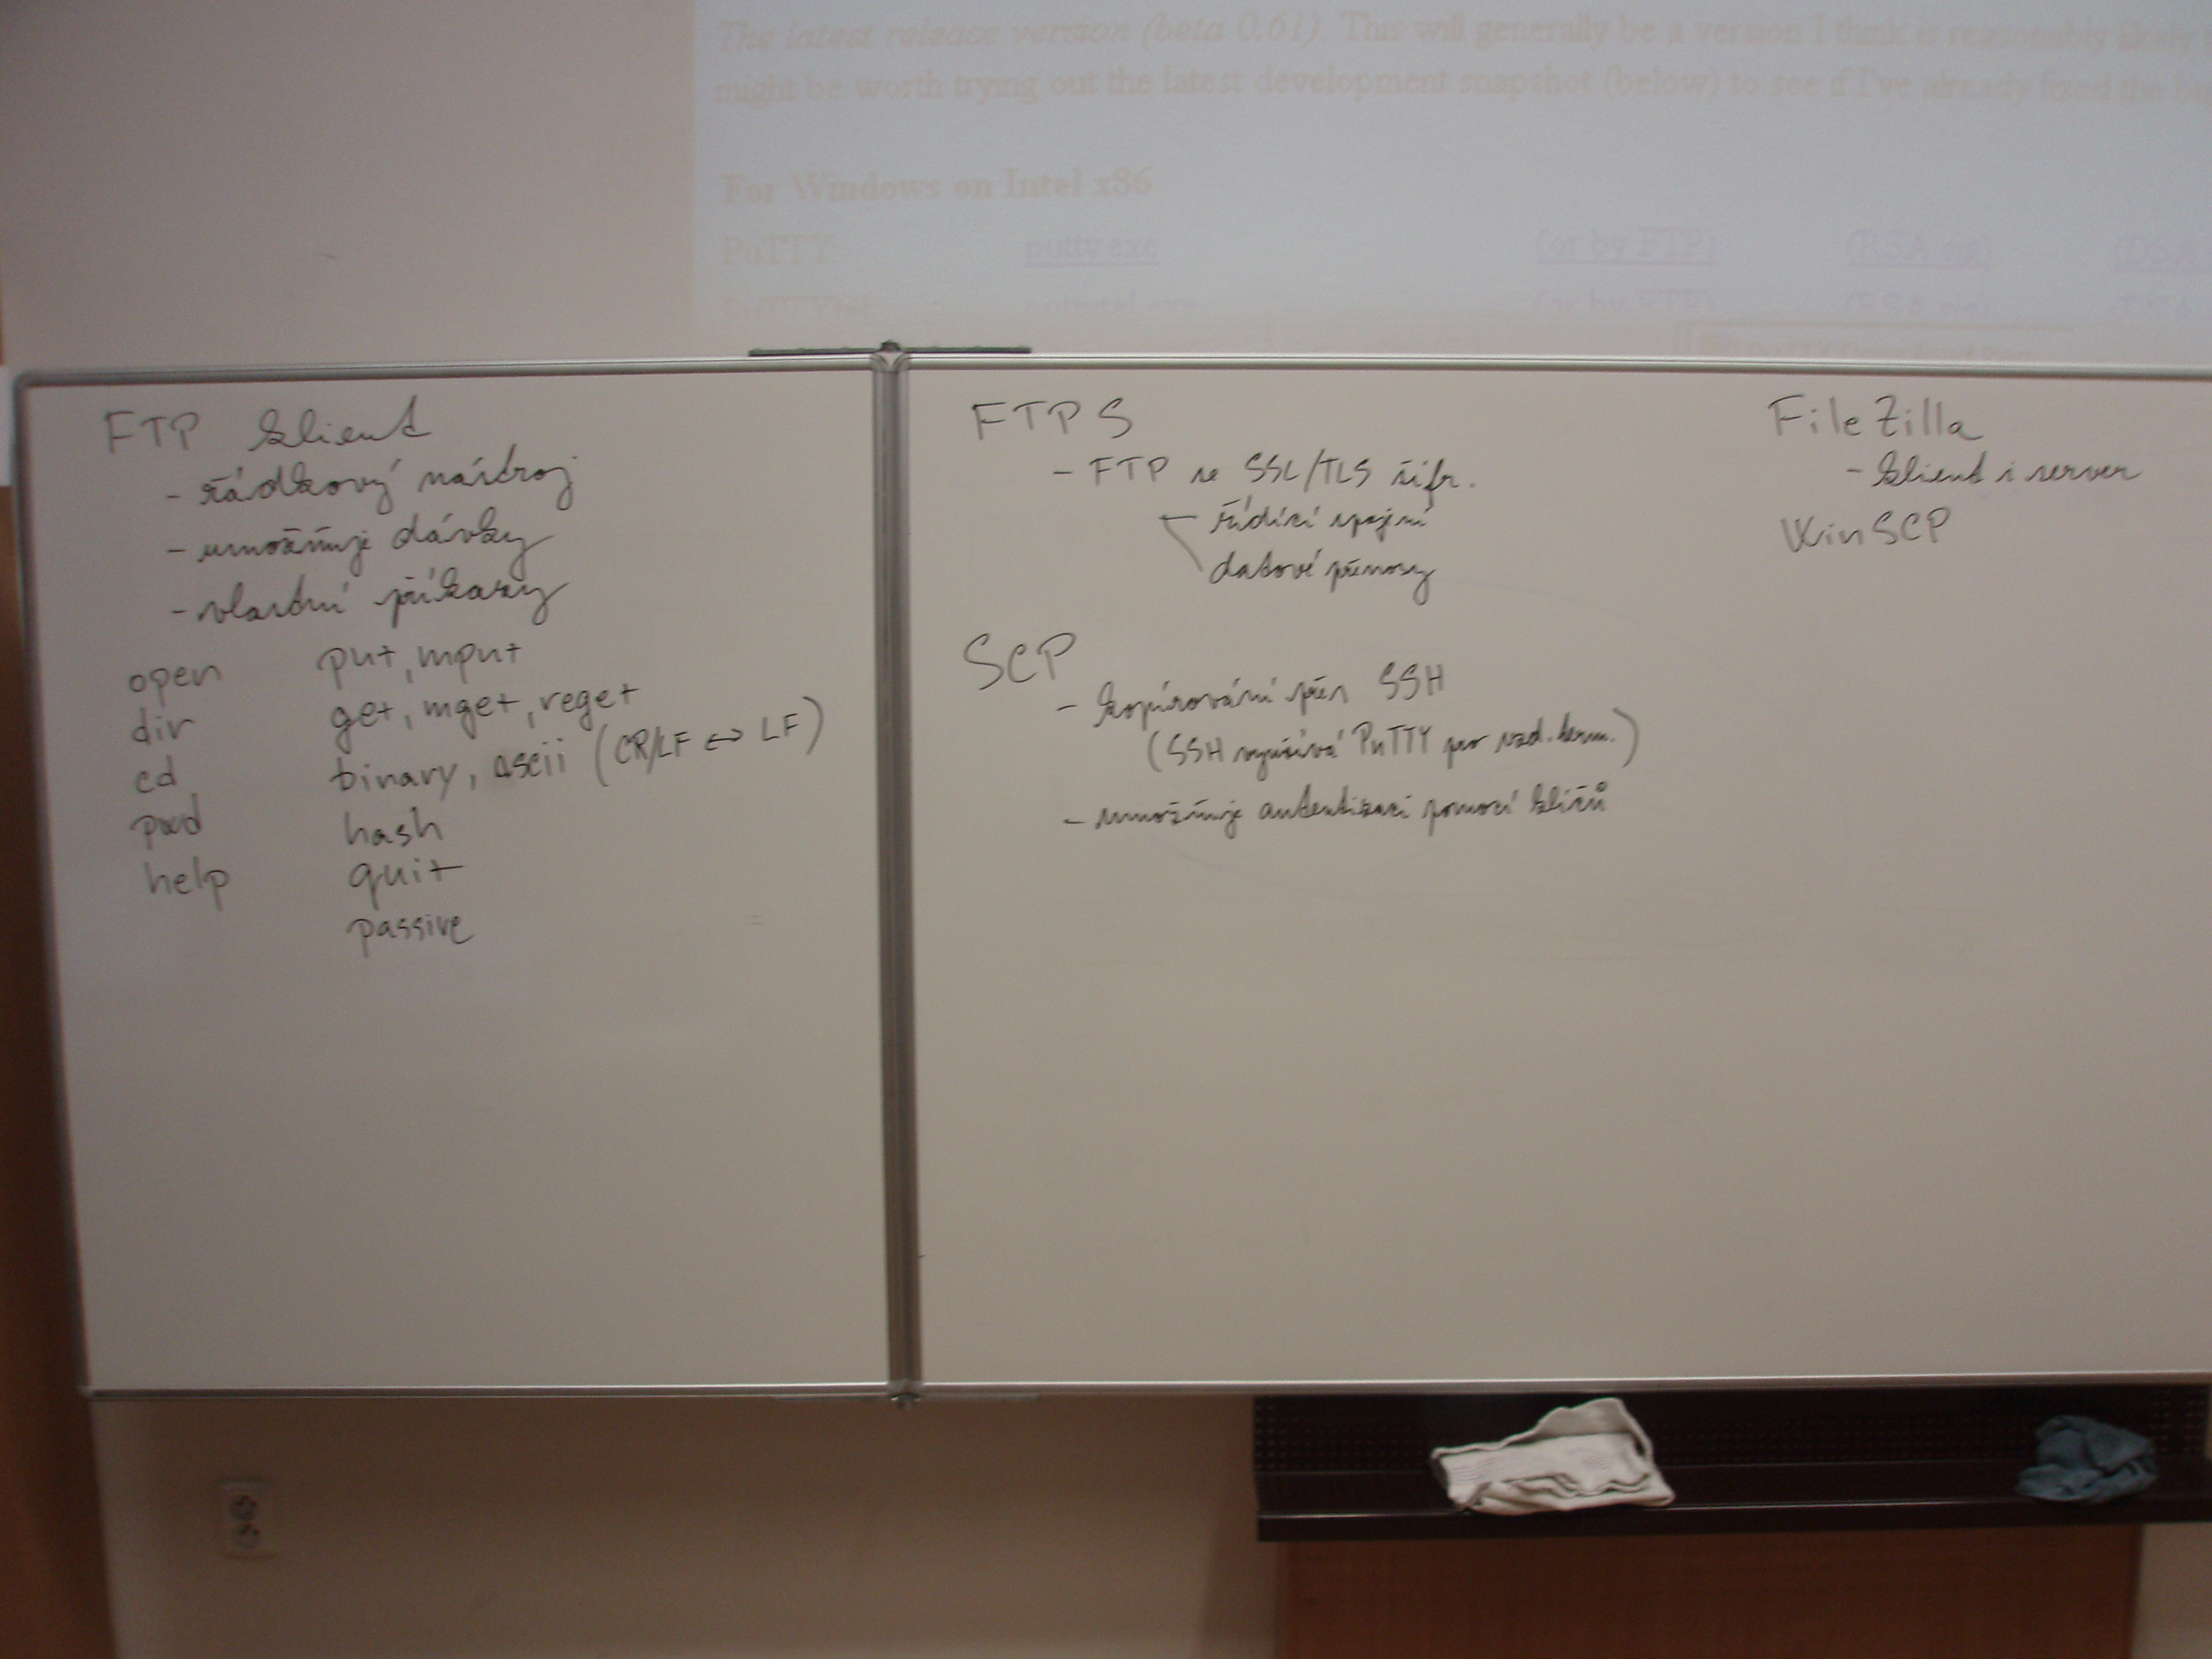 The latest release version (beta 0.61). This will generally be a version I think is reasonably likely
might be worth trying out the latest development snapshot (below) to see if I've already fixed the
For Windows on Intel x86
PuTTY putty.exe (or by FTP) (RSA sig) (DSA
PuTTYtel puttytel.exe (or by FTP) (RSA sig) (DSA
FTP klient
- řádkový nástroj
- umožňuje dávky
- vlastní příkazy
open put, mput
dir get, mget, reget
cd binary, ascii (CR/LF ↔ LF)
pwd hash
help quit
passive
FTPS
- FTP se SSL/TLS šifr.
řídící spojení
datové přenosy
SCP
- kopírování přes SSH
(SSH využívá PuTTY pro vzd. term.)
- umožňuje autentizaci pomocí klíčů
FileZilla
- klient i server
WinSCP